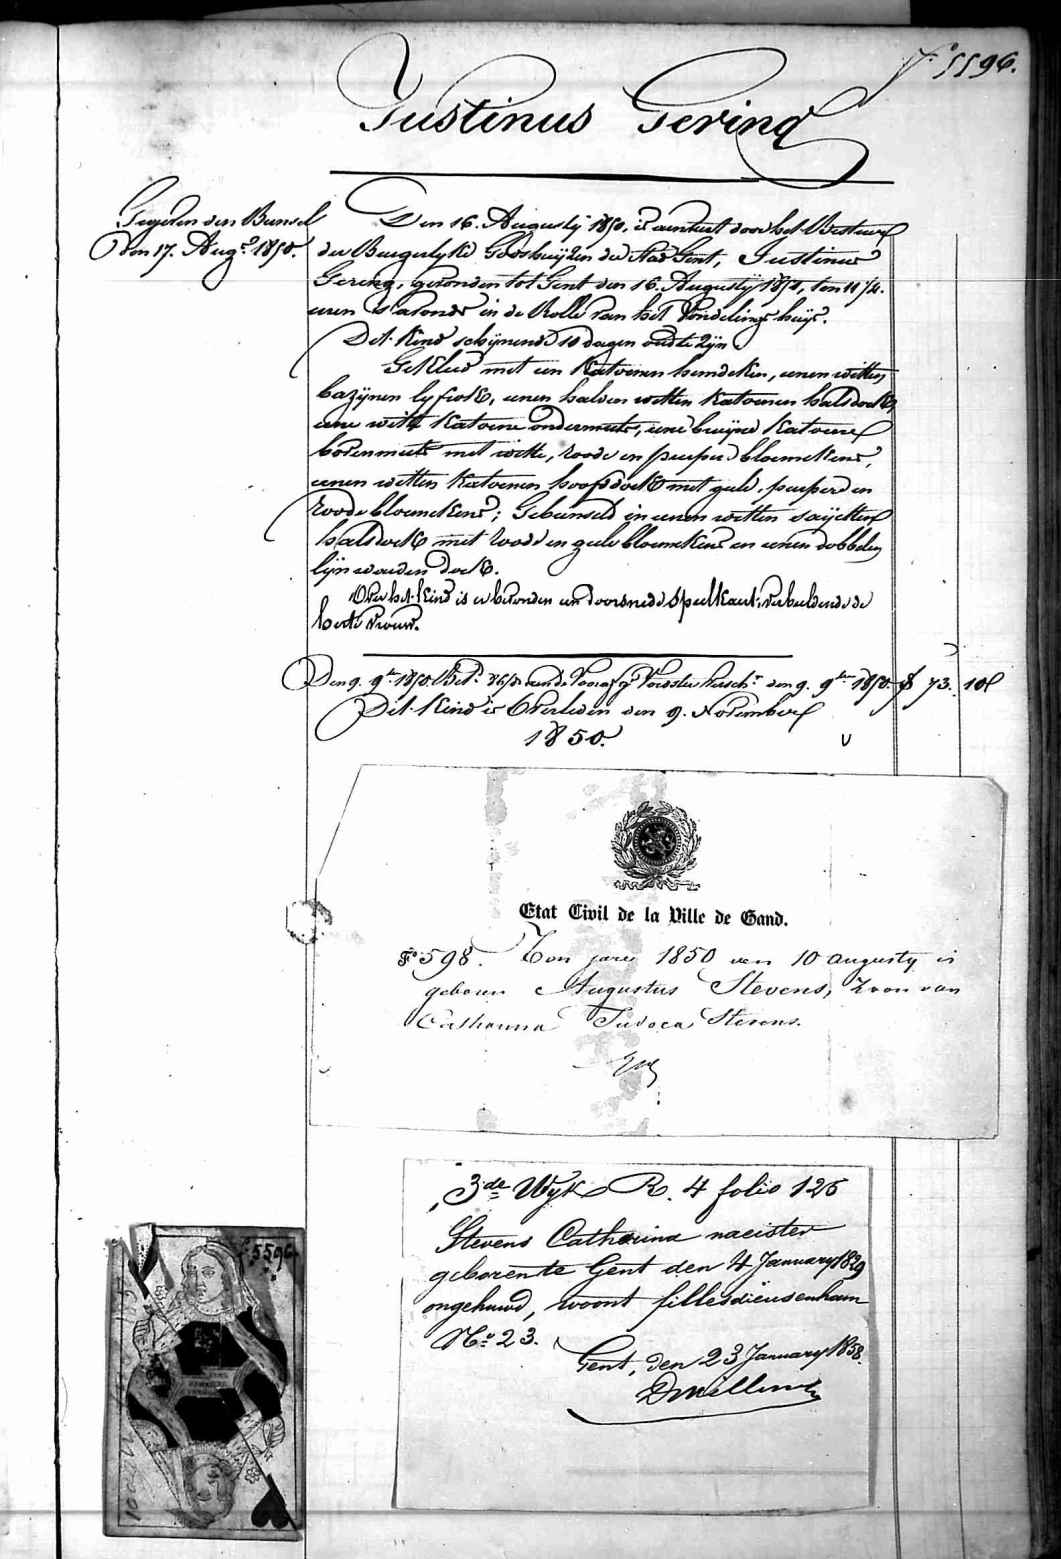 f° 5596.
Justinus Gering
Gegeven den Bunsel
den 17. Augt. 1850.
Den 16. Augusty 1850, is aenveert door het Bestuur
der Burgerlyke Godshuijzen der Stad Gent, Justinus
Gering, gevonden tot Gent den 16. Augustÿ 1850, ten 11 1/4.
uren s'avonds in de Rolle van het Vondelings huijs.
Dit Kind schijnende 10 dagen oud te zijn
Gekleed met een Katoenen hemdeken, eenen witten
bazijnen lyfrok, eenen halven witten Katoenen halsdoek,
eene witte Katoene ondermuts, eene bruijne Katoene
bovenmuts met witte, roode en purper bloemekens,
eenen witten Katoenen hoofddoek met gele, purper en
roode bloemekens; Gebunseld in eenen witten saijetten
halsdoek met roode en gele bloemekens en eenen dobbelen
lijnwaeden doek.
Over het Kind is er bevonden een doorsnede Speelkaart, verbeeldende de
herte vrouw.
Den 9. 9ber 1850. den 9. 9ber 1850 73. 10
Dit Kind is Overleden den 9. November
1850.
Etat Civil de la Ville de Gand.
F° 598. Ten jare 1850 den 10 augusty is
geboren Augustus Stevens, Zoon van
Catharina Judoca Stevens.
3de Wyk R. 4 folio 125
Stevens Catharina naeister
geboren te Gent den 4 January 1829
ongehuwd, woont filles dieusenham
N° 23.
Gent, den 23 January 1858.
f° 5596